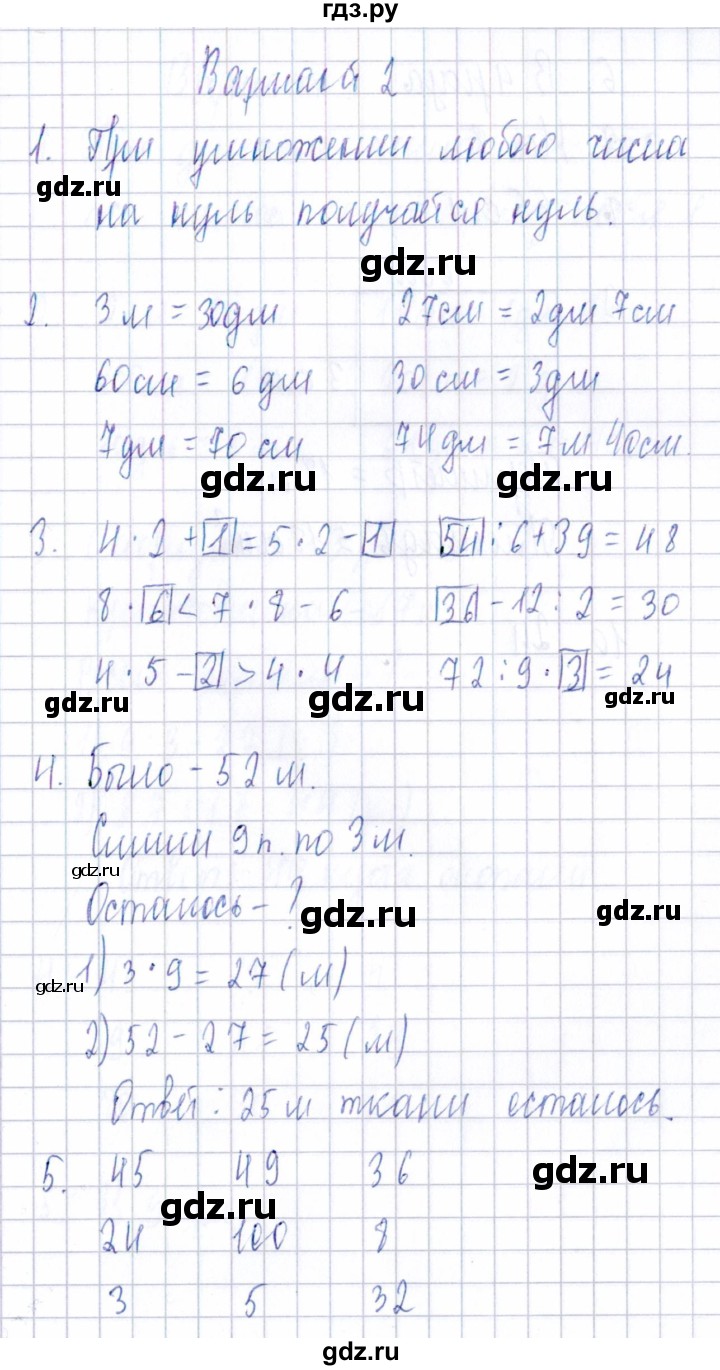 гдз.ру
Вариант 2
1. При умножении любого числа
gdz.ru
на нуль получается нуль.
gdz.ru
2. 3 м = 30 дм 27 см = 2 дм 7 см
60 см = 6 дм 30 см = 3 дм
7 дм = 70 см 74 дм = 7 м 40 см.
gdz.ru gdz.ru
3. 4 · 2 + 1 = 5 · 2 - 1 54 : 6 + 39 = 48
8 · 6 < 7 · 8 - 6 36 - 12 : 2 = 30
4 · 5 - 2 > 4 · 4 72 : 9 · 3 = 24
gdz.ru gdz.ru gdz.ru
4. Было - 52 м.
Сшили 9 п. по 3 м.
gdz.ru
Осталось - ?
gdz.ru gdz.ru
1) 3 · 9 = 27 (м)
gdz.ru
2) 52 - 27 = 25 (м)
Ответ: 25 м ткани осталось.
5. 45 49 36
gdz.ru gdz.ru
24 100 8
3 5 32
gdz.ru